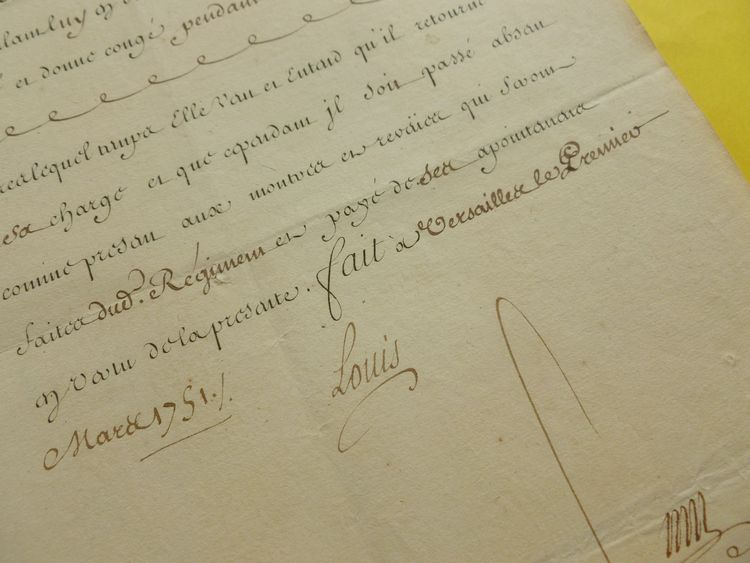 et donne congé pendant
lequel temps Elle Veut et Entend qu'il retourne
sa charge et que cependant jl soit passé absent
comme present aux montres et reveües qui seront
faites dud. Régiment et payé de ses apointemens
en vertu de la presente. fait à Versailles le Premier
Mars 1751./.
Louis